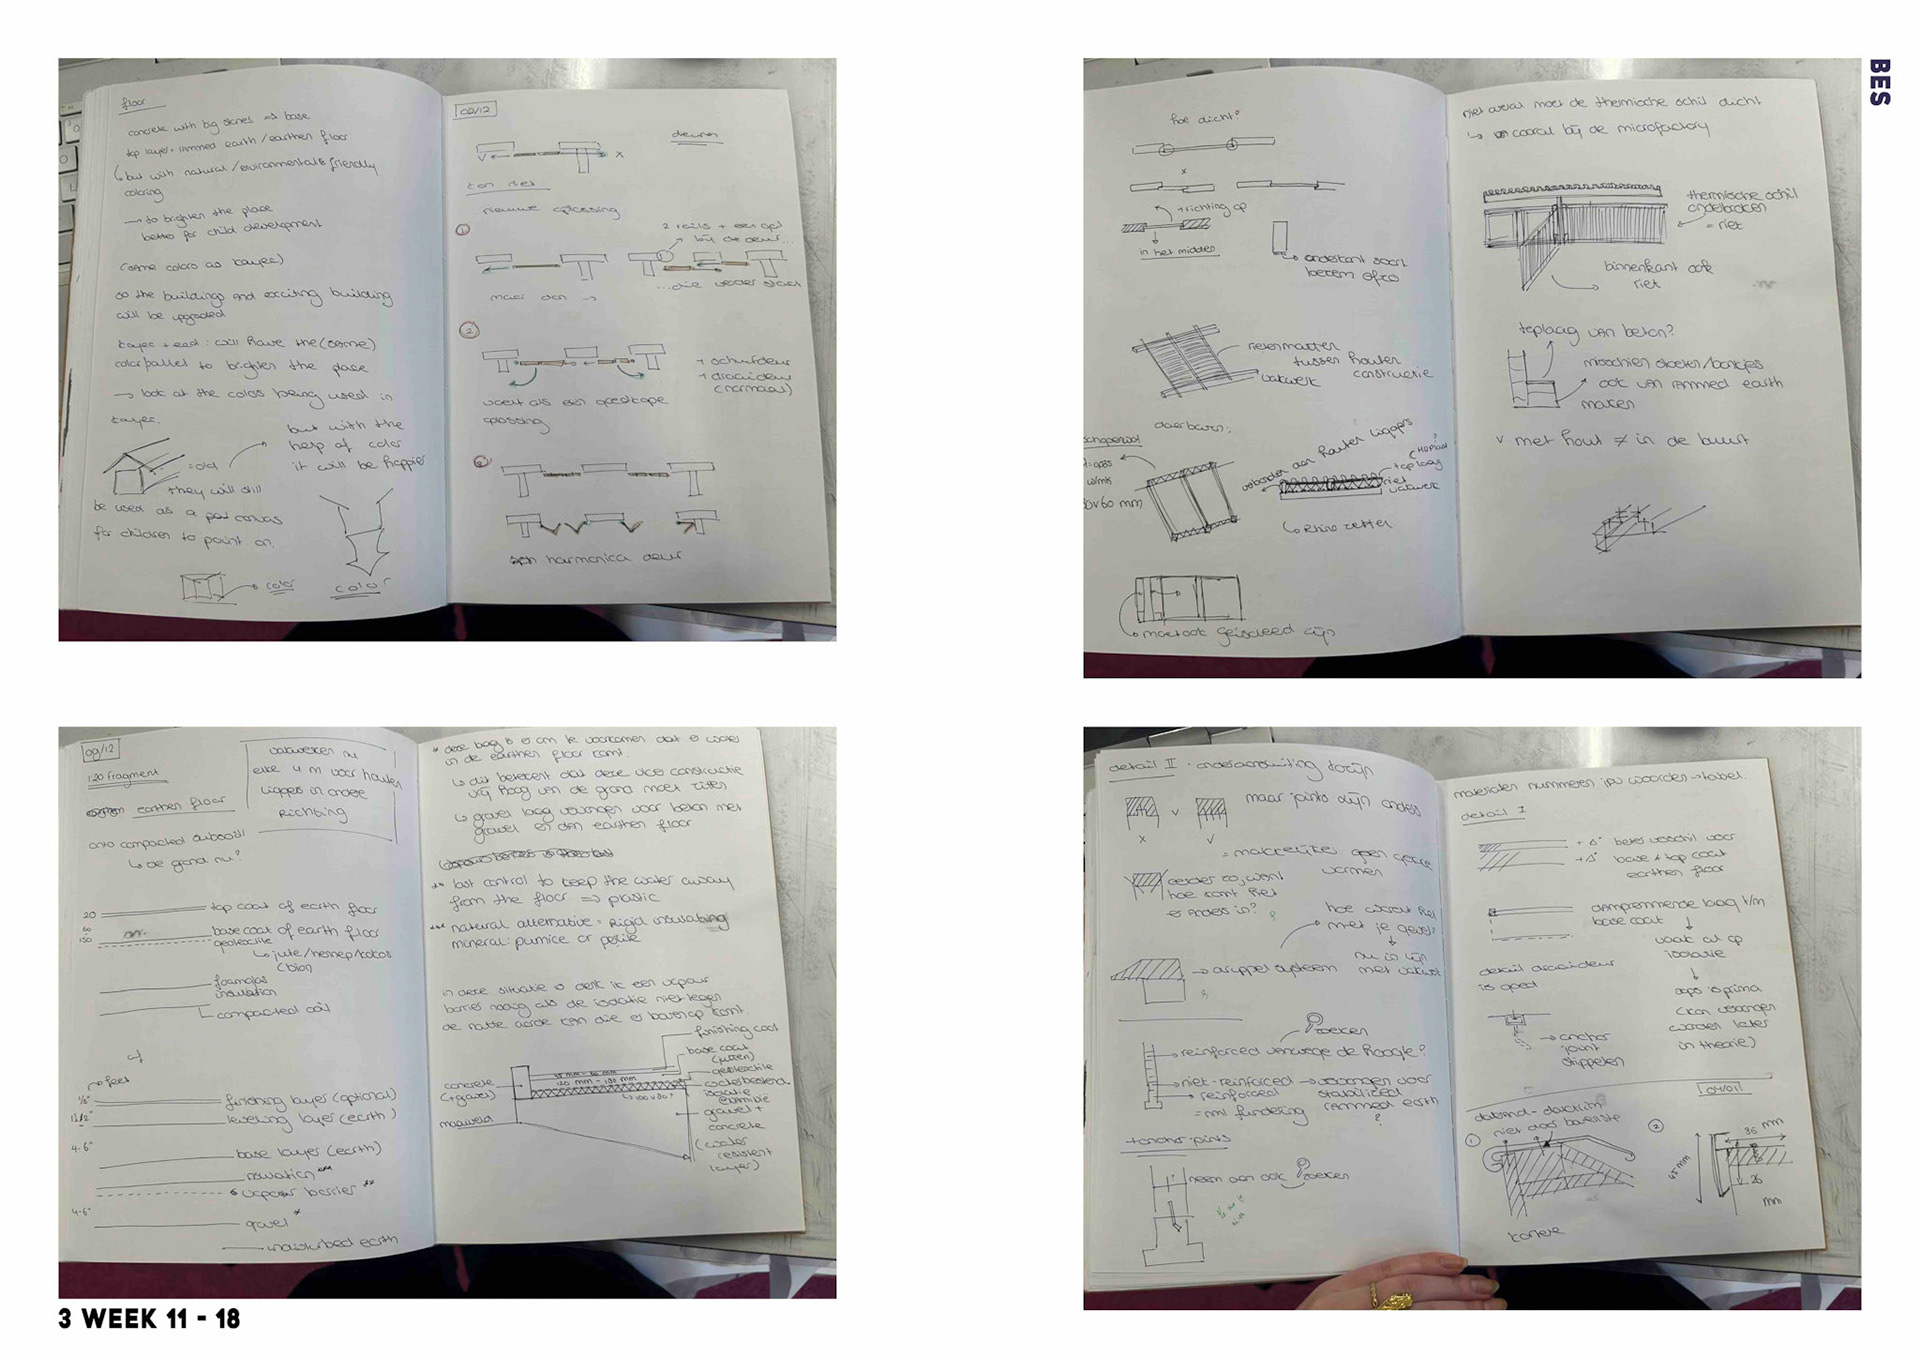 BES
floor
concrete with big stones => base
top layer = rammed earth / earthen floor
but with natural / environmental friendly
coloring
→ to brighten the place
better for child development
(same colors as Kayec)
so the buildings and exciting building
will be upgraded
Kayec + ead: will have the (same)
color pallet to brighten the place
→ look at the colors being used in
Kayec.
but with the
help of color
it will be happier
= old
they will still
be used as a canvas
for children to paint on.
color
color
02/12
deuren
v
x
nieuwe oplossing
1
2 rails + een op
bij de deur...
...die verder
maar dan →
2
+ schuifdeur
+ draaideur
(normaal)
voelt als een goedkope
oplossing
3
harmonica deur
hoe dicht?
x
+ richting op
in het midden
onderkant soort
bezem ofzo
rietenmatten
tussen houten
constructie
vakwerk
daarboven:
aan houten liggers
toplaag
riet
vakwerk
60 mm
↳ Rhino zetten
moet ook geisoleerd zijn
niet overal moet de thermische schil dicht
↳ vooral bij de microfactory
thermische schil
onderbroken
= riet
binnenkant ook
riet
toplaag van beton?
misschien stoelen/bankjes
ook van rammed earth
maken
v met hout ≠ in de buurt
09/12
1:20 fragment
vakwerken nu
elke 4 m voor houten
liggers in andere
richting
earthen floor
onto compacted subsoil
↳ de grond nu?
20
top coat of earth floor
150
base coat of earth floor
geotextile
↳ jute/hennep/kokos
foamglas
insulation
compacted soil
of
feet
1/8"
finishing layer (optional)
leveling layer (earth)
4-6"
base layer (earth)
insulation ***
vapour barrier **
4-6"
gravel *
undisturbed earth
* deze laag is er om te voorkomen dat er water
in de earthen floor komt.
↳ dit betekent dat deze vloer constructie
vrij hoog van de grond moet zitten
↳ gravel laag vervangen voor beton met
gravel en dan earthen floor
** last control to keep the water away
from the floor => plastic
*** natural alternative = rigid insulating
mineral: pumice or perlite
in deze situatie is denk ik een vapour
barrier nodig als de isolatie niet tegen
de natte aarde kan die er bovenop komt.
finishing coat
base coat
geotextile
isolatie
gravel +
concrete
(water
resistent
layer)
concrete
(+gravel)
maaiveld
120 mm - 180 mm
detail II - onderaansluiting kozijn
x
v
v
maar pinto zijn anders
= makkelijker geen gekke
vormen
eerder zo, want
hoe komt riet
er anders in?
hoe wordt riet
met je gevel?
nu in lijn
met vakwerk
→ druppel systeem
zoeken
→ reinforced vanwege de hoogte?
→ niet-reinforced → vervangen voor
→ reinforced
stabilized
= nml fundering
rammed earth
?
+ anchor pints
neem dan ook
zoeken
materialen nummeren ipv woorden → tabel.
detail I
beter verschil voor
base + top coat
earthen floor
dampremmende laag t/m
base coat
vaak al op
isolatie
detail draaideur
is goed
oops is prima
(kan vervangen
worden later
in theorie)
→ anchor
joint
stippelen
04/01
dakrand - daktrim
niet door bovenste
1
2
35 mm
45 mm
26
mm
3 WEEK 11 - 18